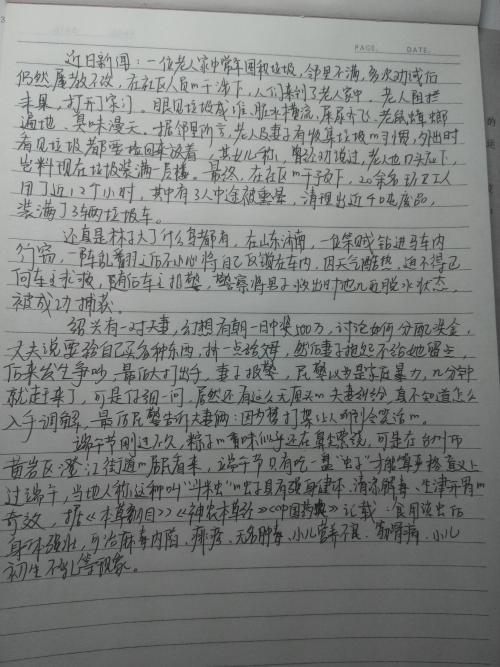 PAGE. DATE.
近日新闻：一位老人家中常年囤积垃圾，邻里不满，多次劝诫后
仍然屡教不改，在社区人员的干涉下，人们来到了老人家中。老人阻拦
未果，打开了家门。眼见垃圾成堆、脏水横流、苍蝇乱飞、老鼠蟑螂
遍地、臭味漫天。据邻里所言，老人及妻子有收集垃圾的习惯，外出时
看见垃圾都要捡回来放着，其女儿称，曾劝说过，老人也只点头，
岂料现在垃圾装满一屋楼。最终，在社区的干预下，20余名环卫工人
用了近12个小时，其中有3人中途被熏晕，清理出近40吨废品，
装满了3车两垃圾车。
还真是林子大了什么鸟都有，在山东济南，一位笨贼钻进马车内
行窃，一阵乱翻过后不小心将自己反锁在车内，因天气酷热，迫不得已
向车主求救，随后车主报警，警察将男子救出时他几近脱水状态，
被成功捕获。
绍兴有一对夫妻，幻想有朝一日中奖500万，讨论如何分配奖金，
丈夫说要给自己买各种东西，拼一点给父母，然后妻子抱怨不给她留点，
后来发生争吵，最后大打出手，妻子报警，民警以为是家庭暴力，几分钟
就赶来了，可是仔细一问，居然还有这么无厘头的夫妻纠纷，真不知道怎么
入手调解，最后民警告诉夫妻俩：因为梦打架让人听到会笑话的。
端午节刚过不久，粽子的香味似乎还在鼻尖萦绕，可是在台州市
黄岩区澄江街道的居民看来，端午节只有吃一盘“虫子”才能算严格意义上
过端午，当地人称这种叫“斗米虫”的虫子具有强身健体、清凉解毒、生津开胃的
奇效，据《本草纲目》《神农本草经》《中国药典》记载，食用该虫后
身体强壮，可治麻毒内陷、痱疮、无名肿毒、小儿营养不良、劳伤骨病、小儿
初生不乳等现象。